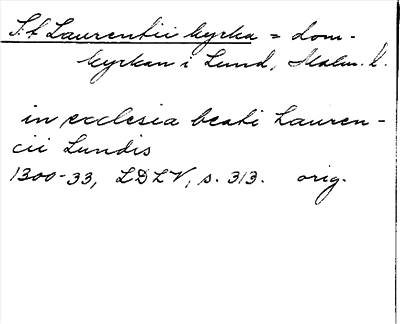 S:t Laurentii kyrka = dom-
kyrkan i Lund, Malm. l.
in ecclesia beati Lauren-
cii Lundis
1300-33, LDLV, s. 313. orig.